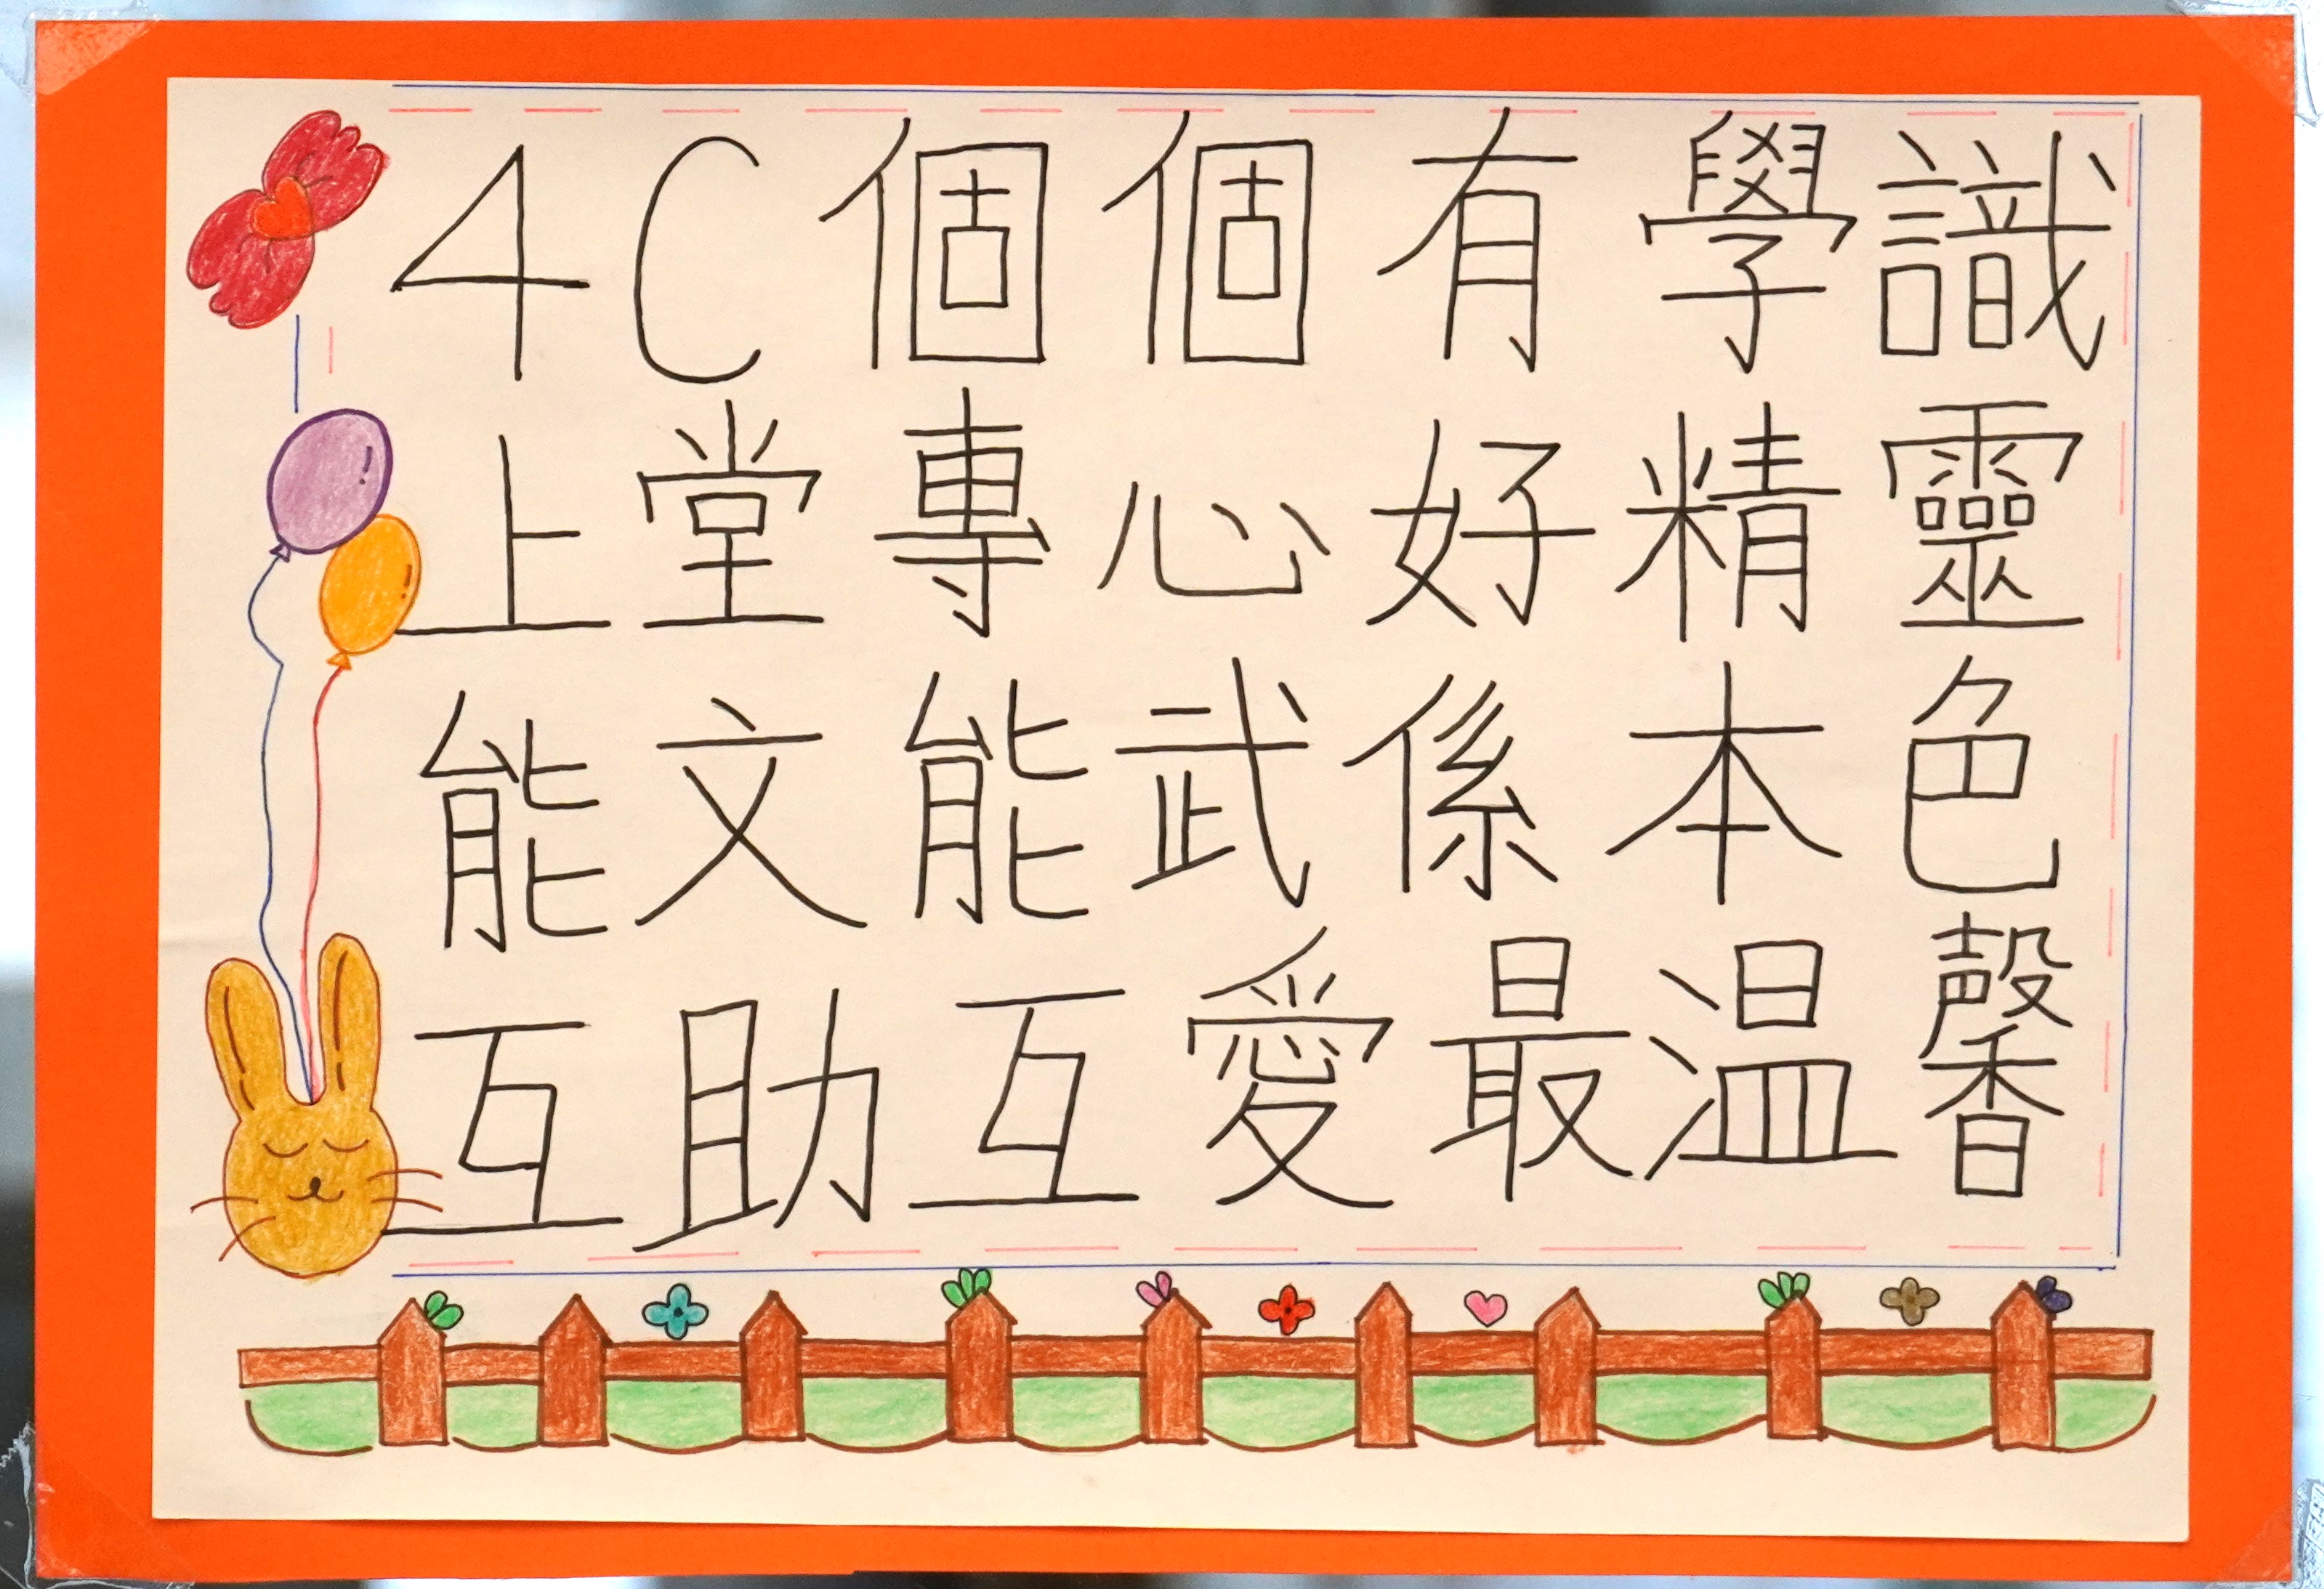 4C個個有學識
上堂專心好精靈
能文能武係本色
互助互愛最温馨